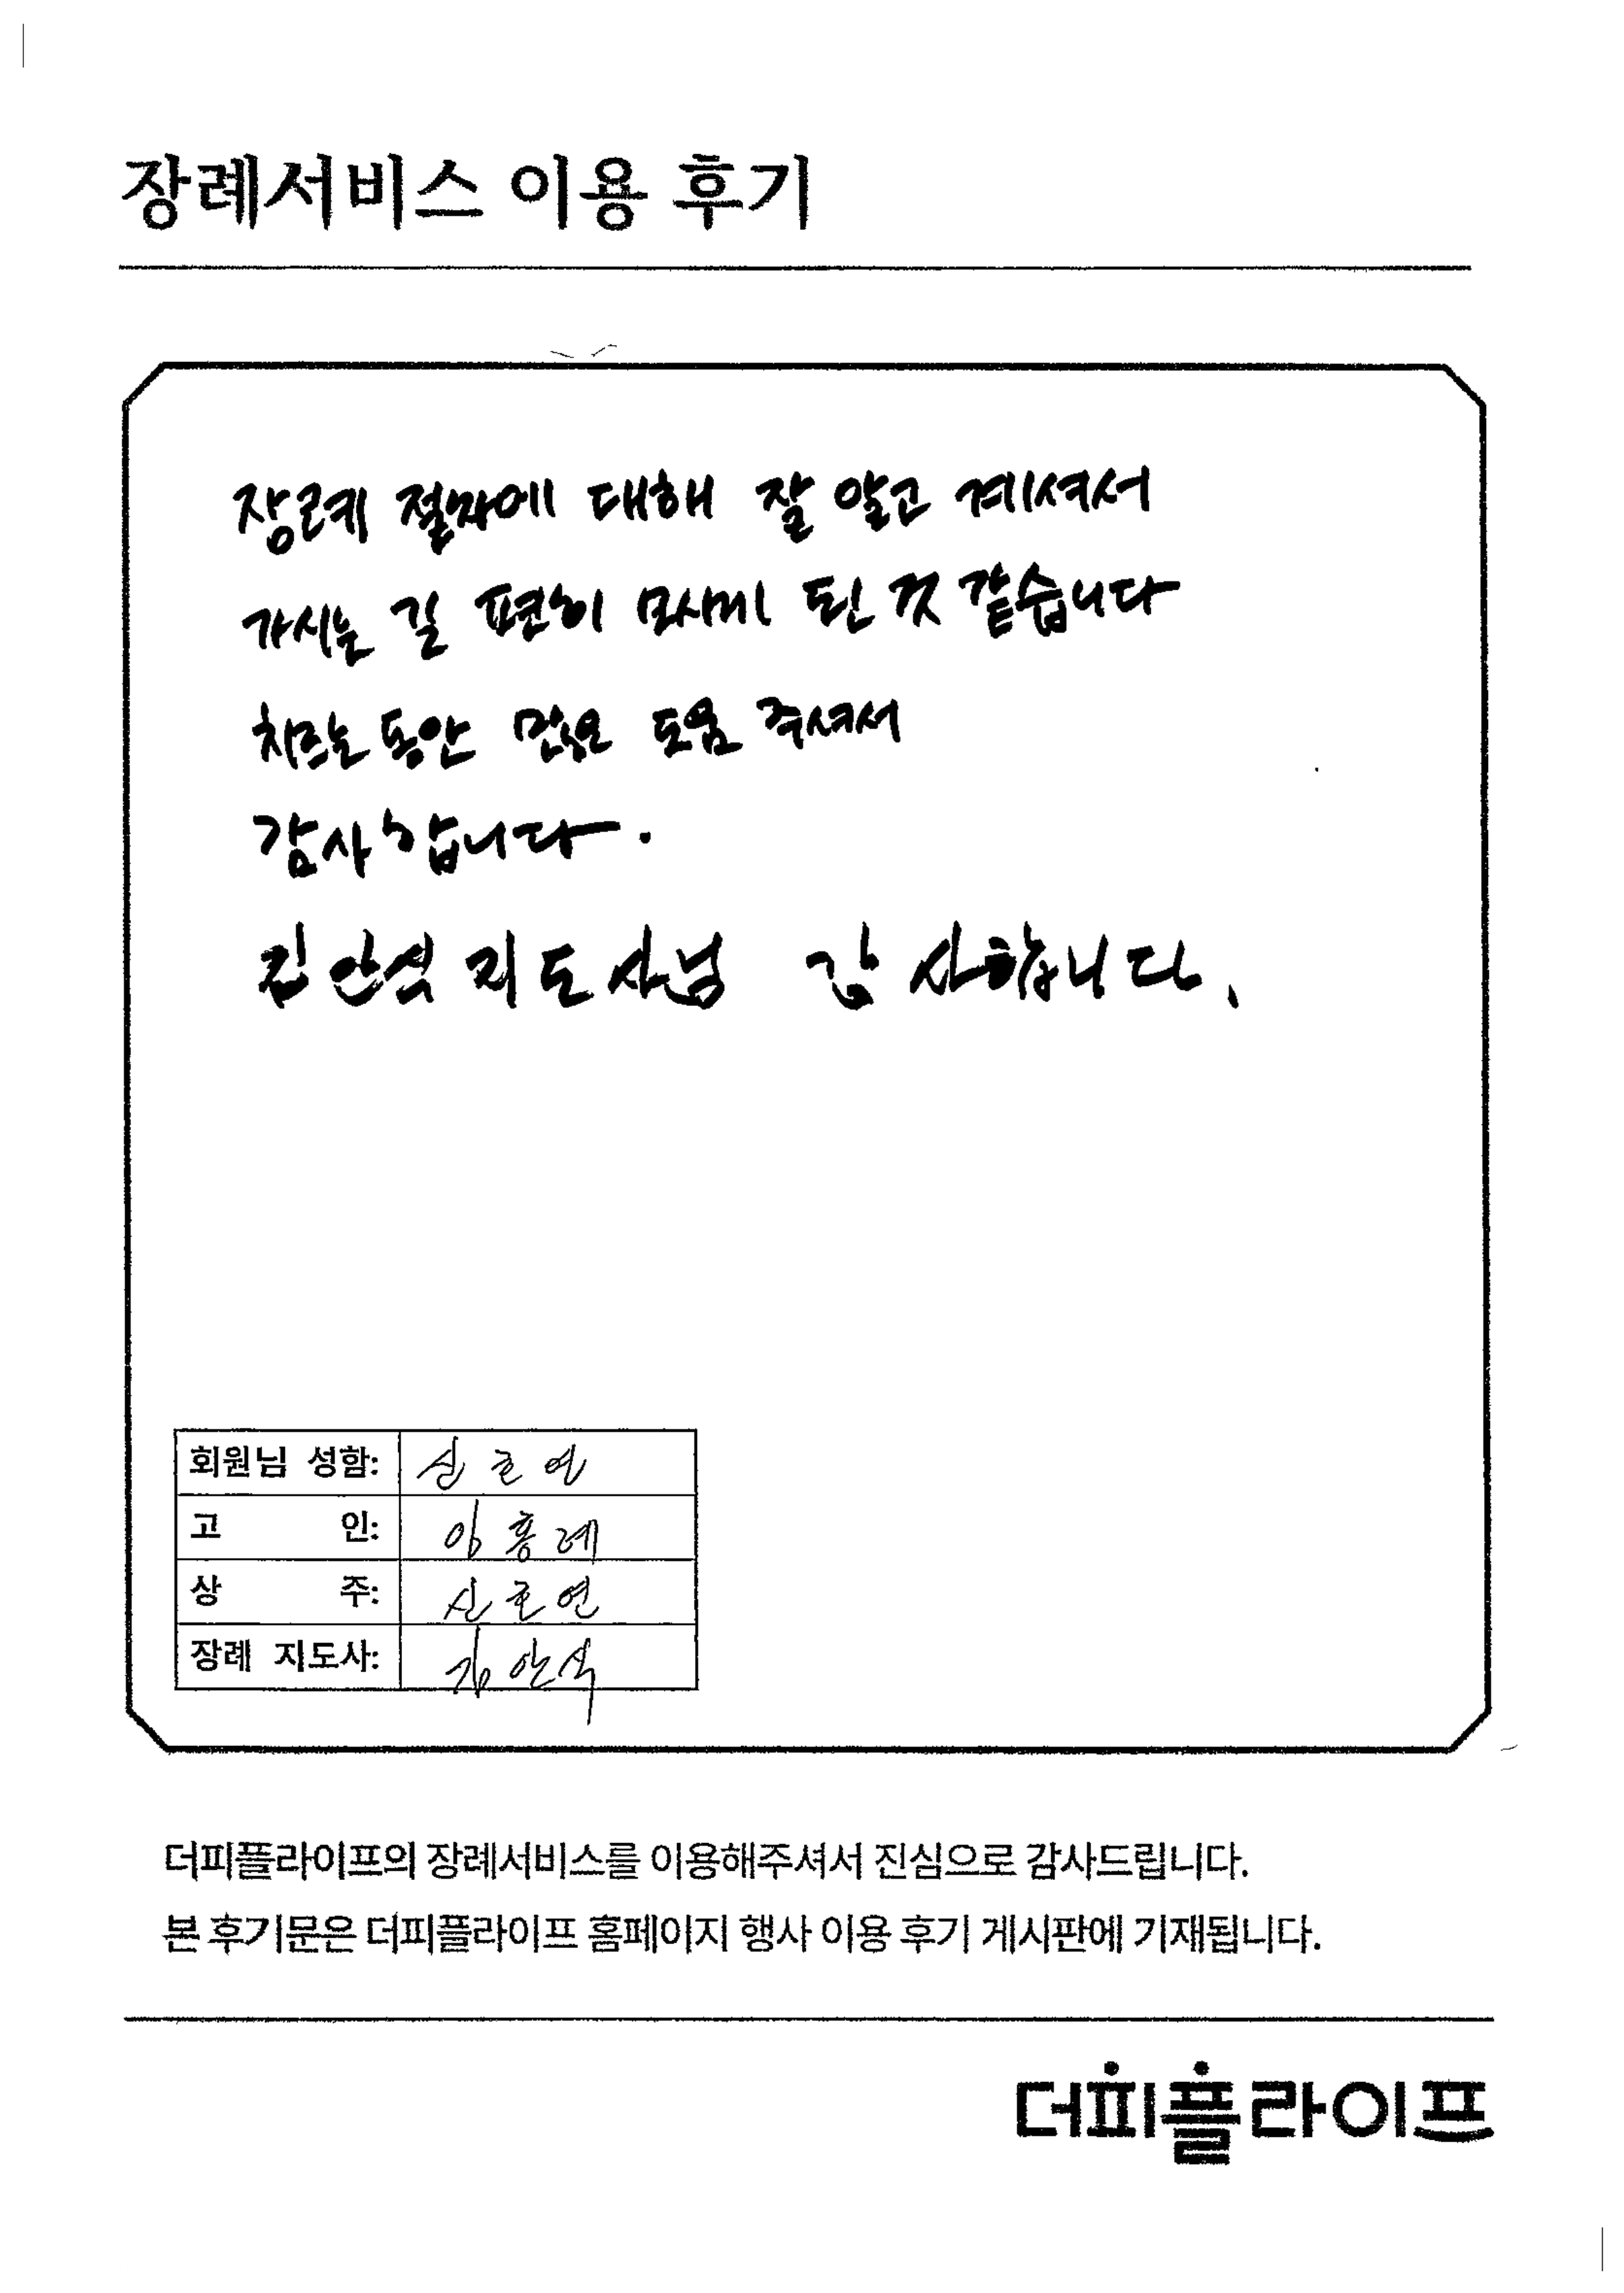 장례서비스 이용 후기
장례 절차에 대해 잘 알고 계셔서
가시는 길 편히 모시게 된 것 같습니다
치르는 동안 많은 도움 주셔서
감사합니다.
김안석 지도사님 감사합니다.
회원님 성함:
고 인: 홍례
상 주:
장례 지도사: 김안석
더피플라이프의 장례서비스를 이용해주셔서 진심으로 감사드립니다.
본 후기문은 더피플라이프 홈페이지 행사 이용 후기 게시판에 기재됩니다.
더피플라이프